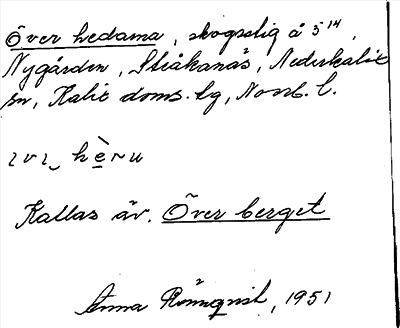 Över hedarna, skogsstig å 5¹⁴,
Nygården, Stråkanäs, Nederkalix
sn, Kalix doms. lg, Norrb. l.
Kallas äv. Över berget
Anna Rönnqvist, 1951